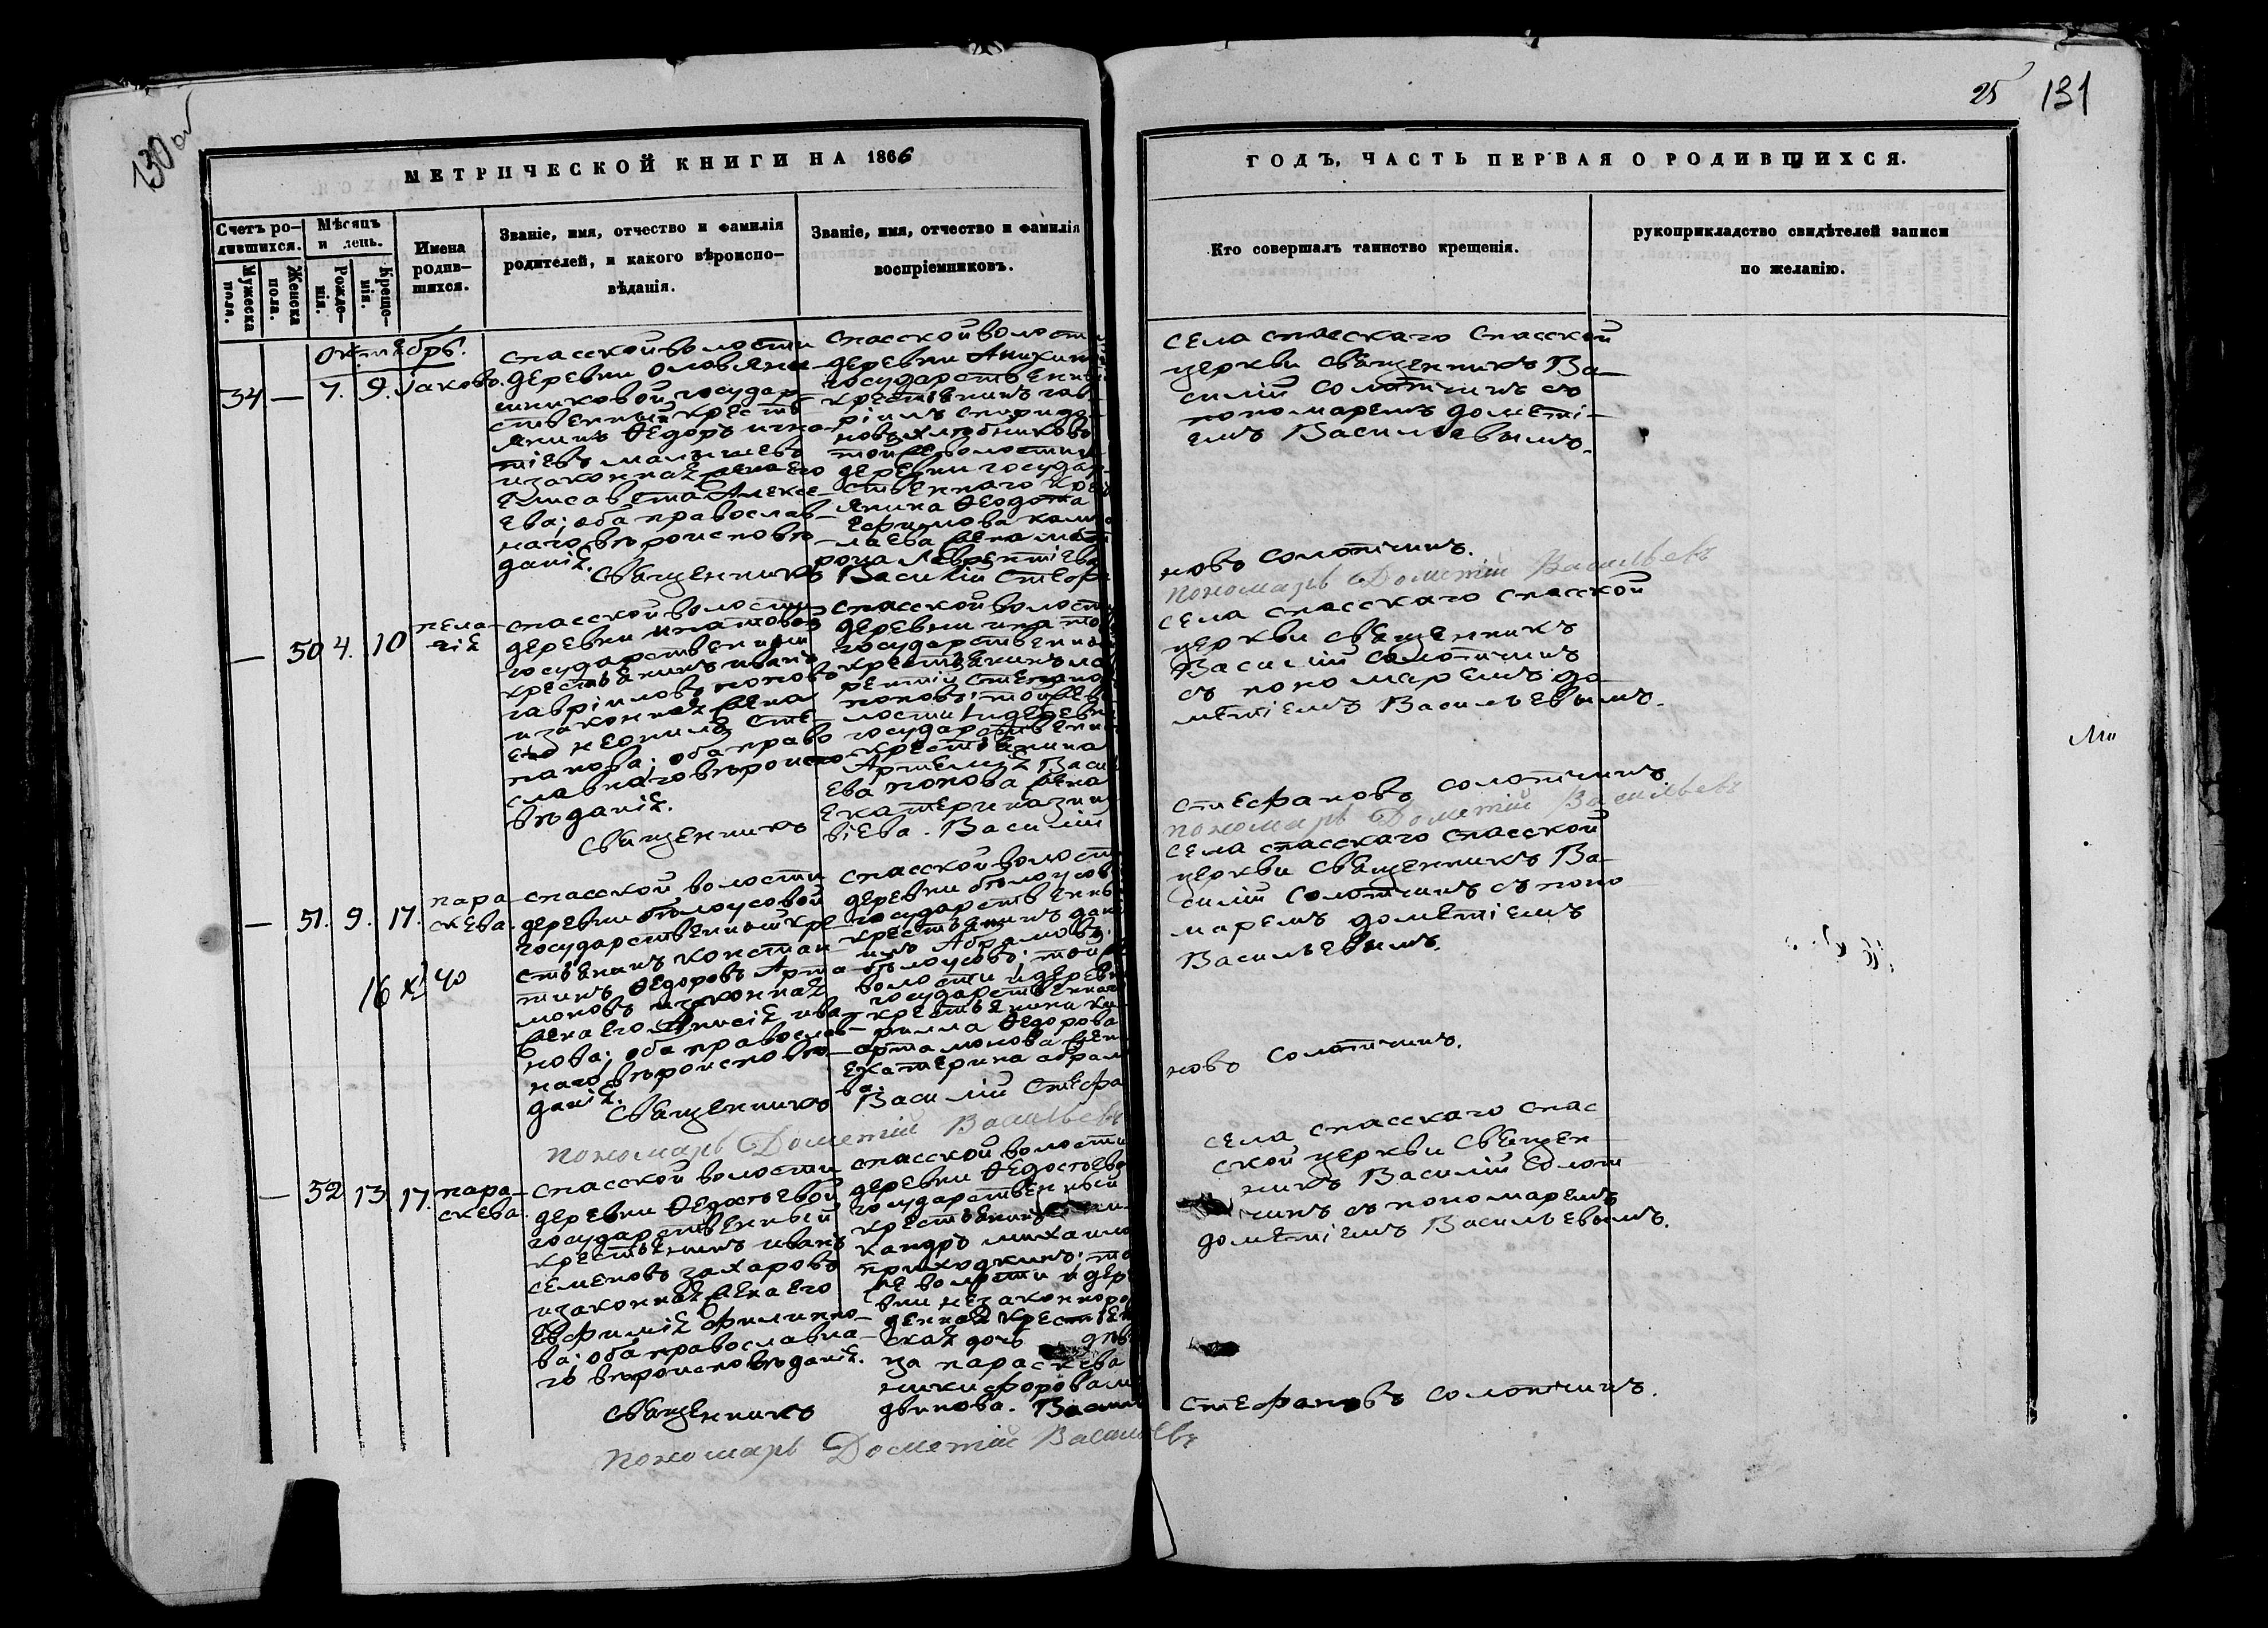 130 об
МЕТРИЧЕСКОЙ КНИГИ НА 1866
Счетъ ро-
дившихся.
Мужеска
пола.
Женска
пола.
Мѣсяцъ
и день.
Рожде-
нія.
Креще-
нія.
Имена
родив-
шихся.
Званіе, имя, отчество и фамилія
родителей, и какого вѣроиспо-
вѣданія.
Званіе, имя, отчество и фамилія
воспріемниковъ.
октябрь.
34 — 7. 9. Іаковъ.
спасской волости
деревни оловяни-
шниковой государ-
ственный кресть
янинъ Ѳедоръ игна-
тіевъ малышевъ
и законная жена его
Елисавета Алексе-
ева; оба православ-
наго вѣроисповѣ-
данія.
спасской волости
деревни
государственный
крестьянинъ гав-
ріилъ спиридо-
новъ хлѣбниковъ
той же волости и
деревни государ-
ственнаго крест
янина Ѳеодота
Ефимова
жена мат
рона Лаврентіева
Священникъ Василій Стефа
— 50 4. 10 пела-
гія
спасской волости
деревни ипатовой
государственный
крестьянинъ иванъ
гавріиловъ поповъ
и законная жена
его неонила сте-
панова; оба право
славнаго вѣроиспо
вѣданія.
спасской волости
деревни ипато
государственный
крестьянинъ ла
рентій степано
поповъ; той же во
лости и деревни
государственна
крестьянина
Артемія Васил
ева попова жена
екатерина зино
віева. Василій
Священникъ
— 51. 9. 17. пара-
скева.
спасской волости
деревни бѣлоусовой
государственный кре-
стьянинъ констан-
тинъ Ѳедоровъ Арта-
моновъ и законная
жена его Анисія ива-
нова; оба православ-
наго вѣроисповѣ-
данія.
спасской волост
деревни бѣлоусов
государственны
крестьянинъ дан
илъ Абрамовъ
бѣлоусовъ; той же
волости и деревн
государственнаго
крестьянина ки-
рилла Ѳедорова
артамонова жена
екатерина абрамо
ва.
Священникъ Василій Стефа
пономарь Дометій Васильевъ
16 40
— 52 13 17. пара-
скева.
спасской волости
деревни Ѳедосѣевой
государственный
крестьянинъ иванъ
семеновъ захаровъ
и законная жена его
Евфимія филиппо-
ва; оба православна-
го вѣроисповѣданія.
спасской волости
деревни Ѳедосѣево
государственный
крестьянинъ ни-
кандръ михаило
приходкинъ; то
же волости и дере
вни незаконноро
денная крестьян
ская дочь дѣви
ца параскева
никифорова
Васил
Священникъ
пономарь Дометій Васильевъ
25 131
ГОДЪ, ЧАСТЬ ПЕРВАЯ О РОДИВШИХСЯ.
Кто совершалъ таинство крещенія.
рукоприкладство свидѣтелей записи
по желанію.
села спасскаго спасской
церкви священникъ Ва-
силій солотчинъ съ
пономаремъ дометі-
емъ Васильевымъ.
новъ солотчинъ.
пономарь Дометій Васильевъ
села спасскаго спасской
церкви священникъ
Василій солотчинъ
съ пономаремъ до-
метіемъ Васильевымъ.
стефановъ солотчинъ.
пономарь Дометій Васильевъ
села спасскаго спасской
церкви священникъ Ва-
силій солотчинъ съ поно
маремъ дометіемъ
Васильевымъ.
новъ солотчинъ.
села спасскаго спас
ской церкви священ-
никъ Василій солот
чинъ съ пономаремъ
дометіемъ Васильевымъ.
стефановъ солотчинъ.